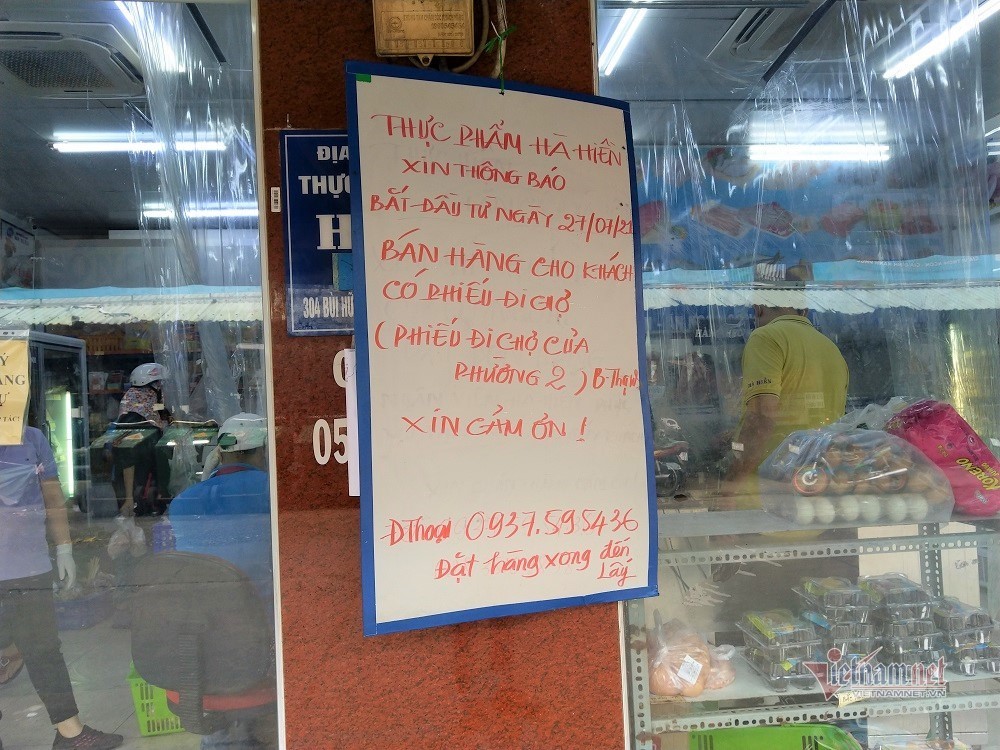 THỰC PHẨM HÀ HIỀN
XIN THÔNG BÁO
BẮT ĐẦU TỪ NGÀY 27/07/21
BÁN HÀNG CHO KHÁCH
CÓ PHIẾU ĐI CHỢ
( PHIẾU ĐI CHỢ CỦA
PHƯỜNG 2 ) B-Thạnh
XIN CẢM ƠN !
Đ Thoại 0937.595436
Đặt hàng xong đến
Lấy
ĐỊA
THỰC
H
304 BÙI HỮ
05
KORENO
Vietnamnet
VIETNAMNET.VN